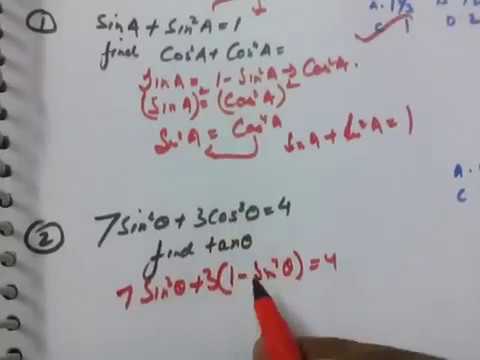 ① SinA + Sin²A = 1
find Cos²A + Cos⁴A =
SinA = 1 - Sin²A → Cos²A.
(SinA)² = (Cos²A)²
Sin²A = Cos⁴A SinA + Sin²A = 1
② 7Sin²θ + 3Cos²θ = 4
find tanθ
7 Sin²θ + 3(1 - Sin²θ) = 4